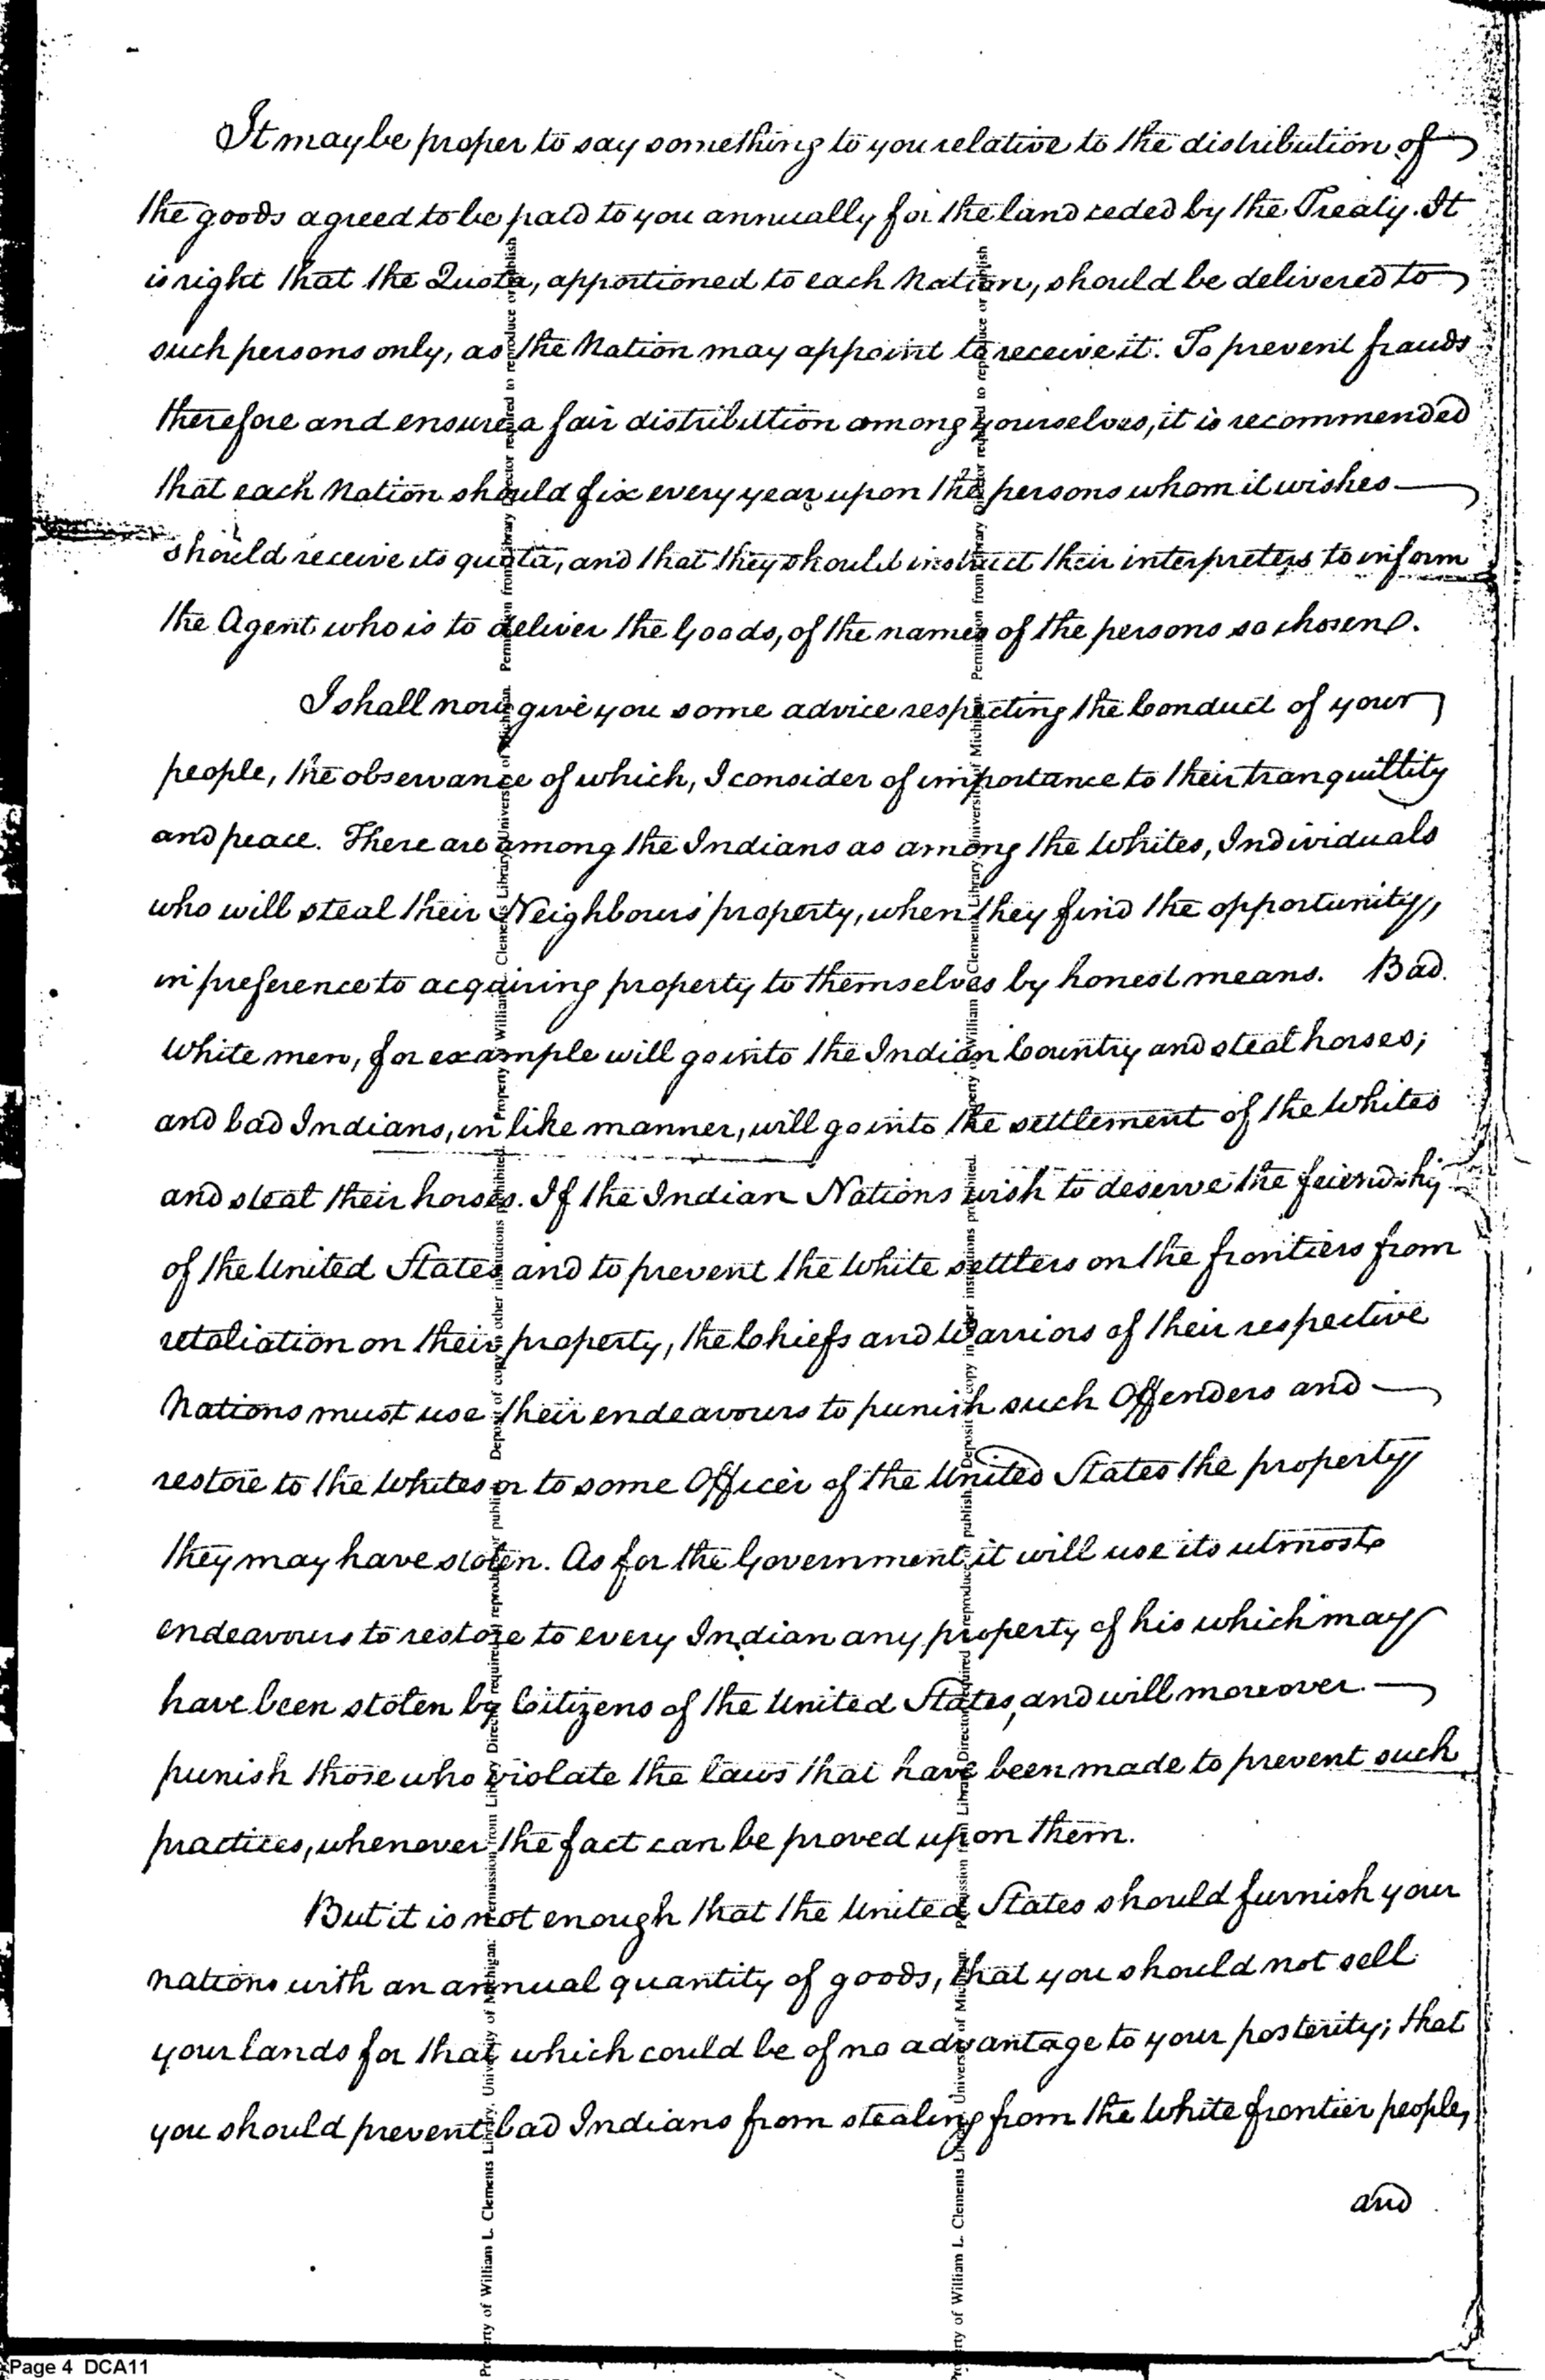 It may be proper to say something to you relative to the distribution of
the goods agreed to be paid to you annually for the land ceded by the Treaty. It
is right that the Quota, apportioned to each Nation, should be delivered to
such persons only, as the Nation may appoint to receive it. To prevent frauds
therefore and ensure a fair distribution among yourselves, it is recommended
that each Nation should fix every year upon the persons whom it wishes
should receive its quota, and that they should instruct their interpreters to inform
the Agent who is to deliver the Goods, of the names of the persons so chosen.
I shall now give you some advice respecting the Conduct of your
people, the observance of which, I consider of importance to their tranquillity
and peace. There are among the Indians as among the Whites, Individuals
who will steal their Neighbours' property, when they find the opportunity,
in preference to acquiring property to themselves by honest means. Bad
White men, for example will go into the Indian Country and steal horses;
and bad Indians, in like manner, will go into the settlement of the Whites
and steal their horses. If the Indian Nations wish to deserve the friendship
of the United States and to prevent the White settlers on the frontiers from
retaliation on their property, the Chiefs and Warriors of their respective
Nations must use their endeavours to punish such Offenders and
restore to the Whites or to some Officer of the United States the property
they may have stolen. As for the Government it will use its utmost
endeavours to restore to every Indian any property of his which may
have been stolen by Citizens of the United States, and will moreover
punish those who violate the laws that have been made to prevent such
practices, whenever the fact can be proved upon them.
But it is not enough that the United States should furnish your
nations with an annual quantity of goods, that you should not sell
your lands for that which could be of no advantage to your posterity; that
you should prevent bad Indians from stealing from the White frontier people,
and
Property of William L. Clements Library, University of Michigan. Permission from Library Director required to reproduce or publish. Deposit of copy in other institutions prohibited.
Property of William L. Clements Library, University of Michigan. Permission from Library Director required to reproduce or publish
Property of William L. Clements Library, University of Michigan. Permission from Library Director required to reproduce or publish. Deposit of copy in other institutions prohibited.
Property of William L. Clements Library, University of Michigan. Permission from Library Director required to reproduce or publish
Page 4 DCA11